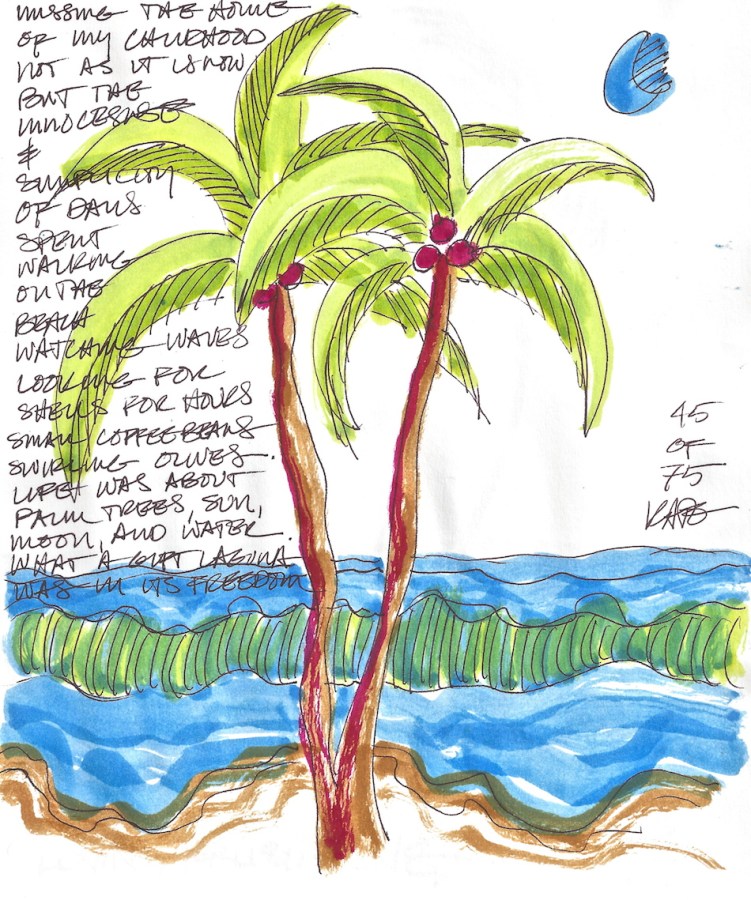 MISSING THE HOME
OF MY CHILDHOOD
NOT AS IT IS NOW
BUT THE
INNOCENSE
&
SIMPLICITY
OF DAYS
SPENT
WALKING
ON THE
BEACH
WATCHING WAVES
LOOKING FOR
SHELLS FOR HOURS
SMALL COFFEE BEANS
SWIRLING OLIVES.
LIFE WAS ABOUT
PALM TREES, SUN,
MOON, AND WATER.
WHAT A GIFT LAGUNA
WAS IN ITS FREEDOM
45
OF
75